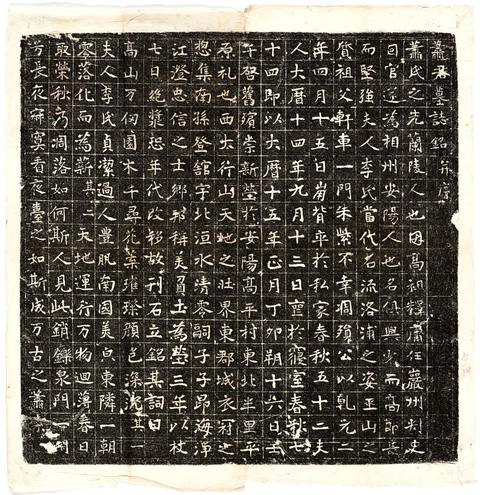 蕭君墓誌銘并序
蕭氏之先蘭陵人也因高祖釋肅任嚴州刺史
因官遂為相州安陽人也名俱興少而高節長
而堅強夫人李氏當代名流洛浦之姿巫山之
質祖父軒車一門朱紫不幸凋殞公以乹元二
年四月十五日崩背卒於私家春秋五十二夫
人大曆十四年九月十三日薨於寢室春秋七
十四即以大曆十五年正月丁卯朔十六日壬
午啓舊殯崇新塋於安陽高平村東北半里平
原礼也西太行山天地之壯界東郡城衣冠之
惣集南孫登舘宇北洹水清零嗣子子昂海淨
江澄忠信之士鄉邦稱美負土為塋三年以杖
七日絶漿恐年代改移故刊石立銘其詞曰
高山万仞国木千尋花葉璀璨顏色深沉其一
夫人李氏貞潔過人豊脱南國美白東隣一朝
零落化而為薪其二天地運行万物迴薄春日
敢榮秋乃凋落如何斯人見此銷鑠泉門一閇
方長夜寂寞看夜臺之如斯成万古之蕭